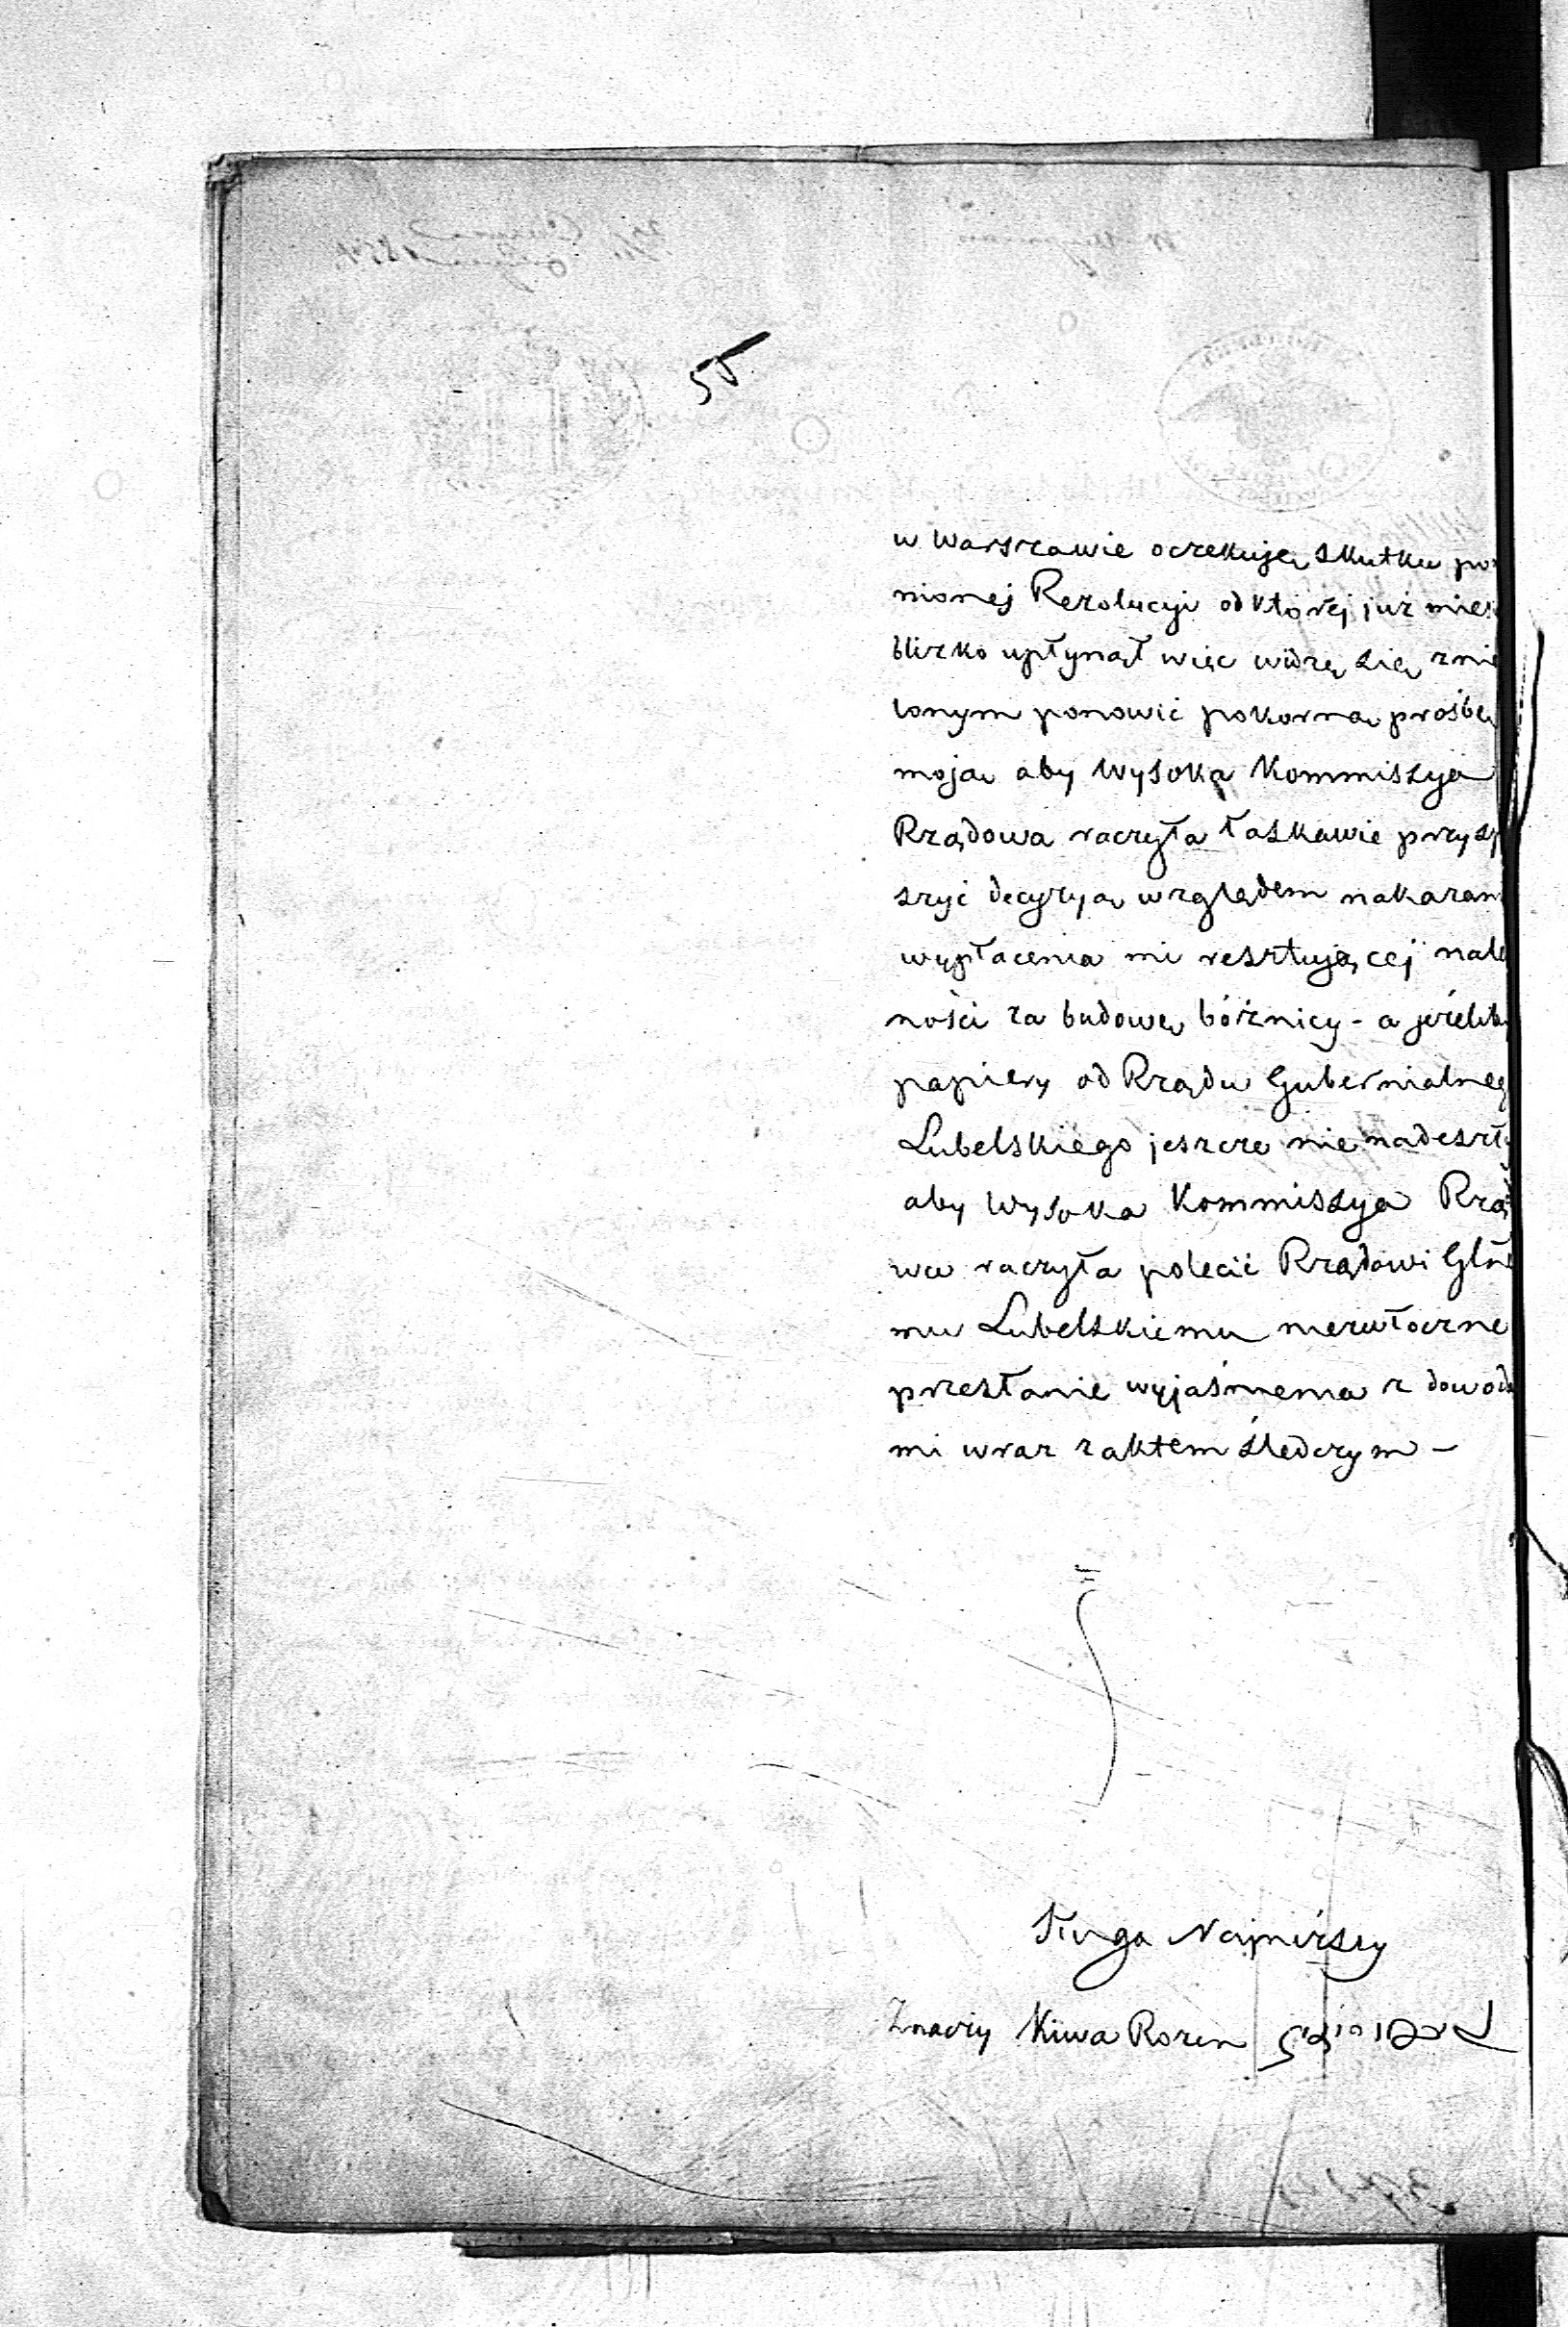 55
w Warszawie oczekuję skutku po
nionej Rezolucyi od której już mies
blizko upłynął więc widzę się znie
lonym ponowić pokorną prośbę
moją aby Wysoka Kommissya
Rządowa raczyła łaskawie przysp
szyć decyzyą względem nakazan
wypłacenia mi resztującej nale
ności za budowę bóżnicy - a jeżeliby
papiery od Rządu Gubernialneg
Lubelskiego jeszcze nie nadeszły
aby Wysoka Kommissya Rzą
wa raczyła polecić Rządowi Glne
mu Lubelskiemu niezwłoczne
przesłanie wyjaśnienia z dowoda
mi wraz z aktem śledczym -
Sługa Najniższy
Znaczy Kiwa Rozen